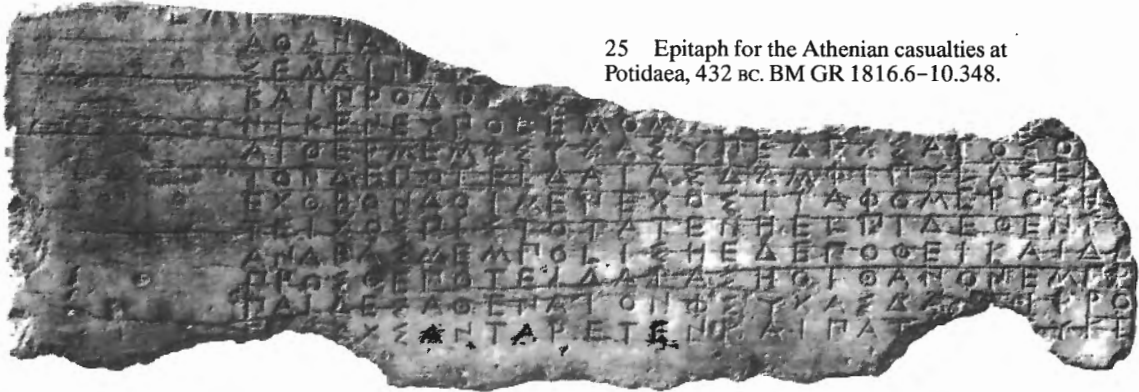 25 Epitaph for the Athenian casualties at
Potidaea, 432 BC. BM GR 1816.6–10.348.
ΑΘΑΝΑ
ΣΕΜΑΙΝ
ΚΑΙΠΡΟΓΟ
ΝΙΚΕΝΕΥΠΟΛΕΜΟΜ
ΑΙΘΕΡΜΕΜΦΣΥΧΑΣΥΠΕΔΕΧΣΑΤΟΣΟ
ΤΟΝΔΕΠΟΤΕΙΔΑΙΑΣΔΑΜΦΙΠΥΛΑΣΕ
ΕΧΘΡΟΝΔΟΙΜΕΝΕΧΟΣΙΤΑΦΟΜΕΡΟΣΗ
ΤΕΙΧΟΣΠΙΣΤΟΤΑΤΕΝΗΕΛΠΙΔΕΘΕΝΤ
ΑΝΔΡΑΣΜΕΜΠΟΛΙΣΗΕΔΕΠΟΘΕΙΚΑΙΔ
ΠΡΟΣΘΕΠΟΤΕΙΔΑΙΑΣΗΟΙΘΑΝΟΝΕΜΠΡ
ΠΑΙΔΕΣΑΘΕΝΑΙΟΝΦΣΥΧΑΣΔΑΝΤΙΡΡΟ
ΧΣΑΝΤΑΡΕΤΕΝΚΑΙΠΑΤ